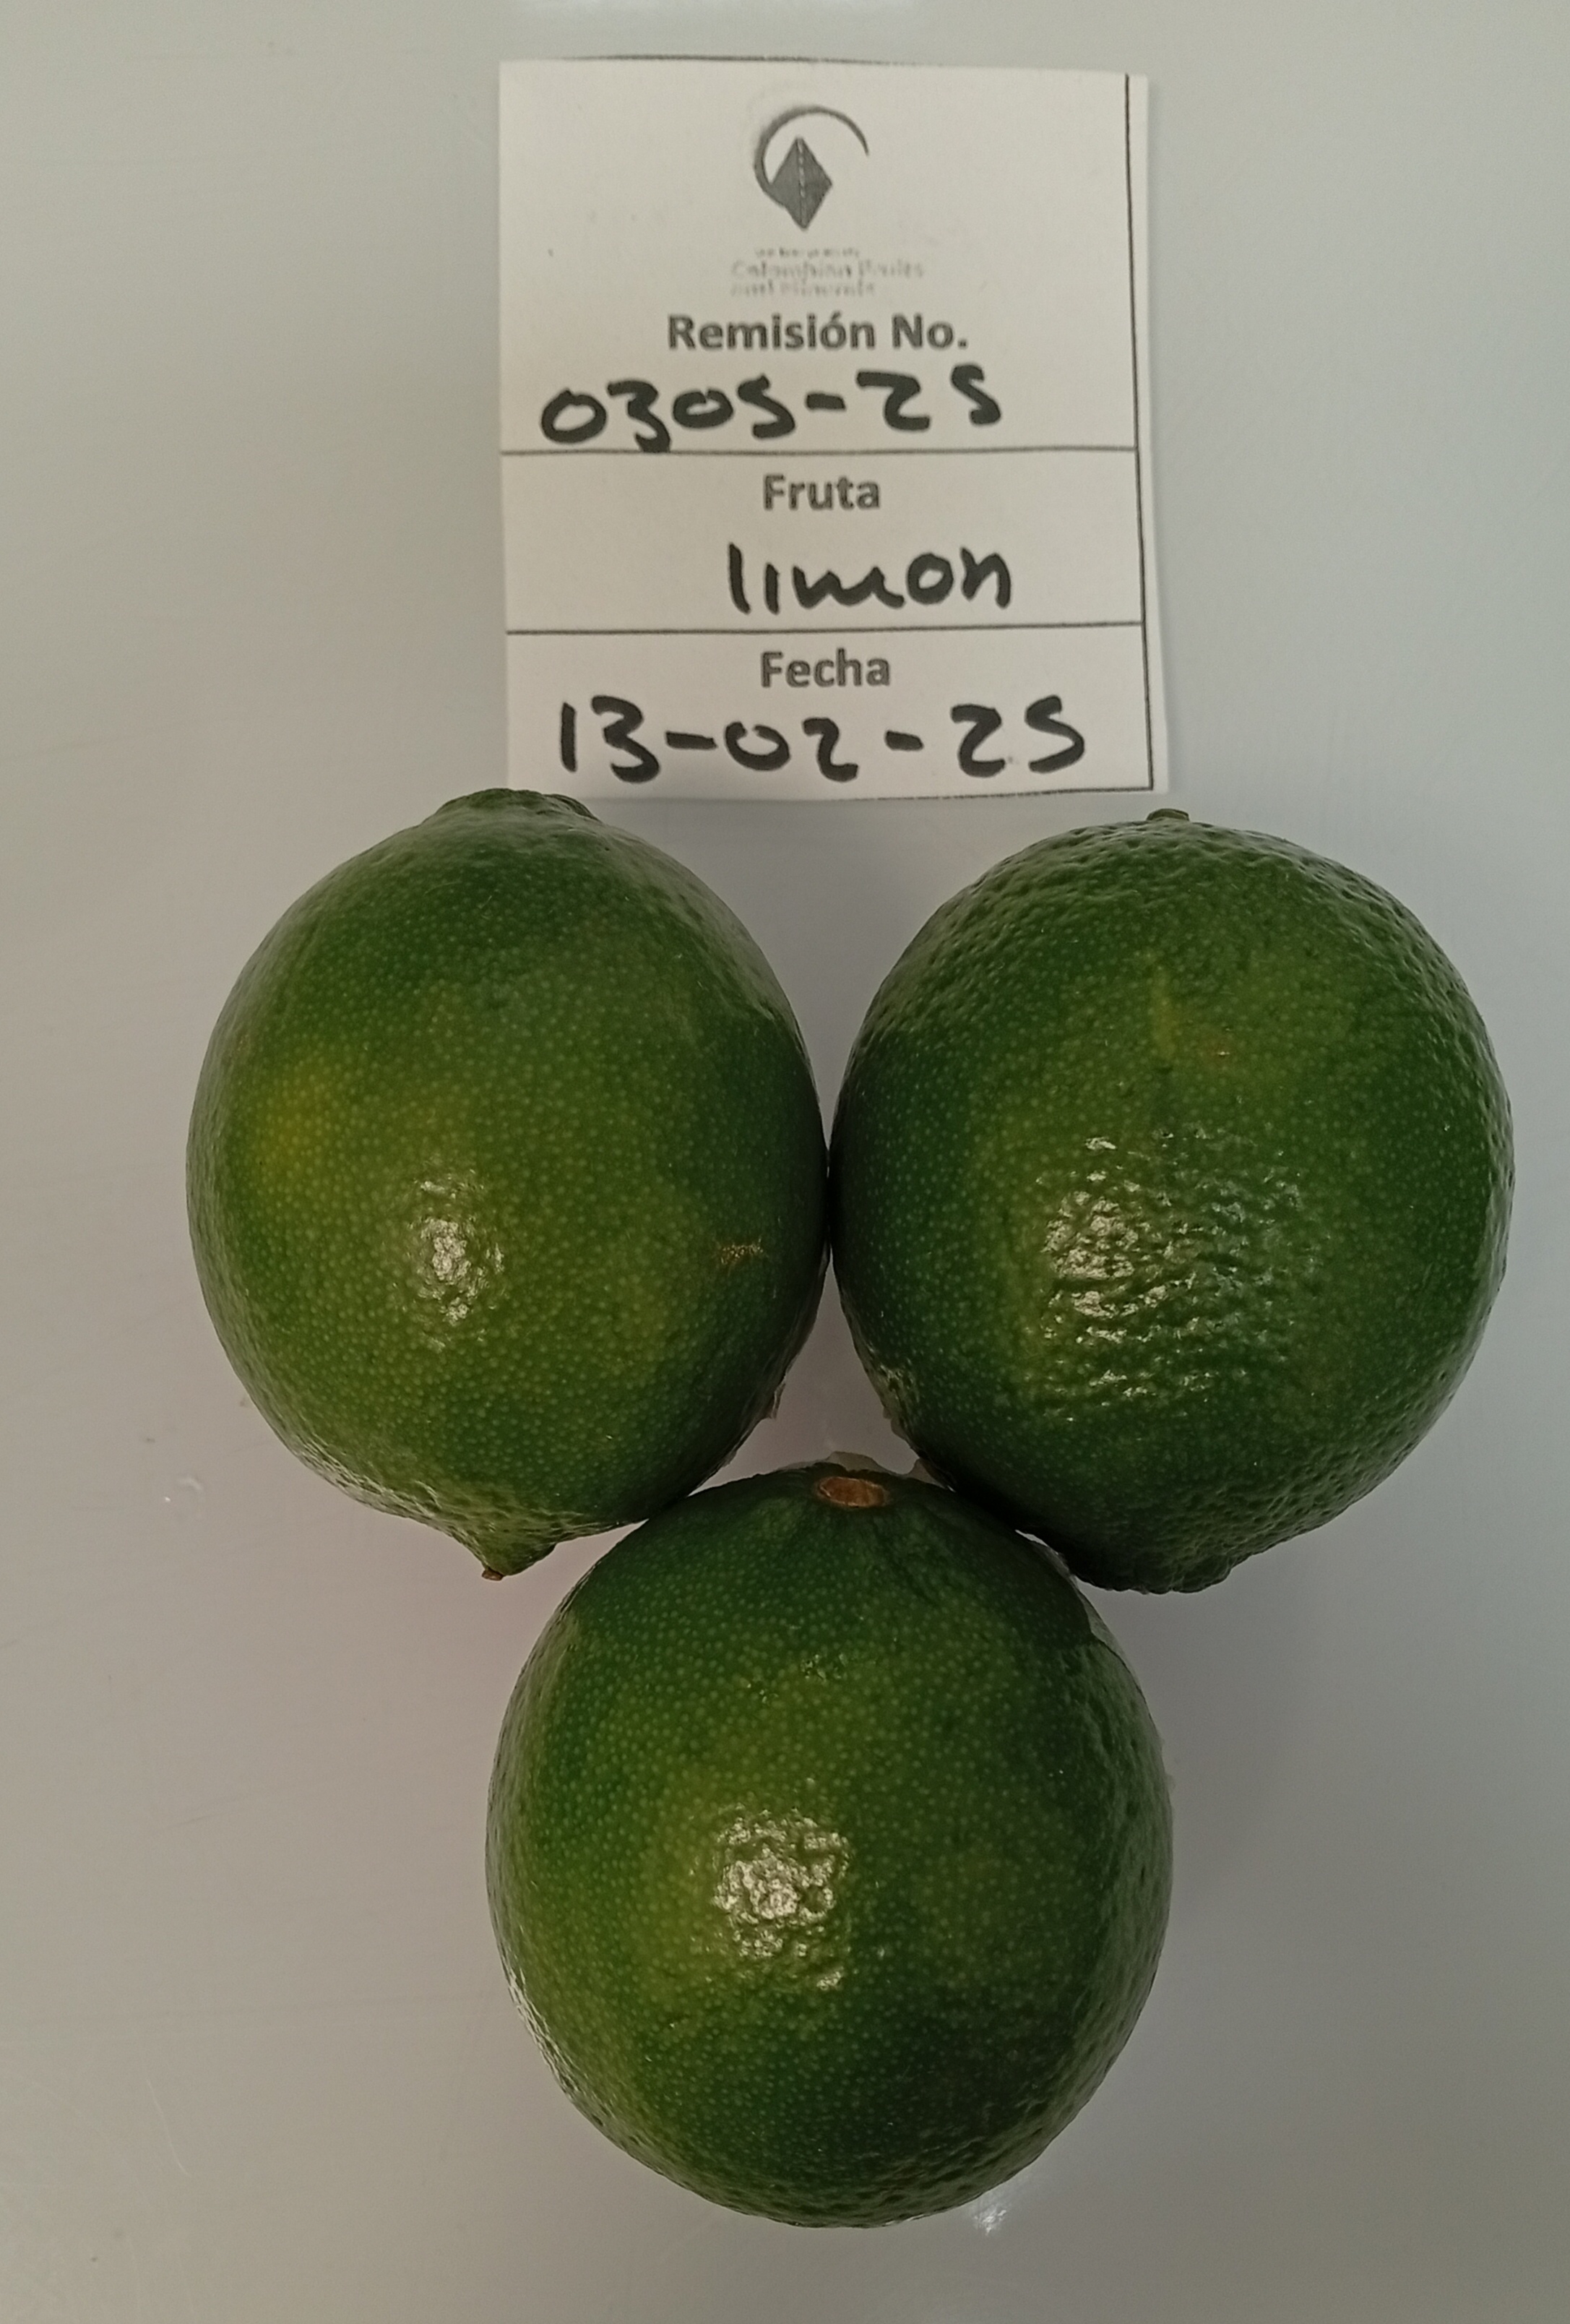 Colombian Fruits
and Minerals
Remisión No.
0305-25
Fruta
limon
Fecha
13-02-25